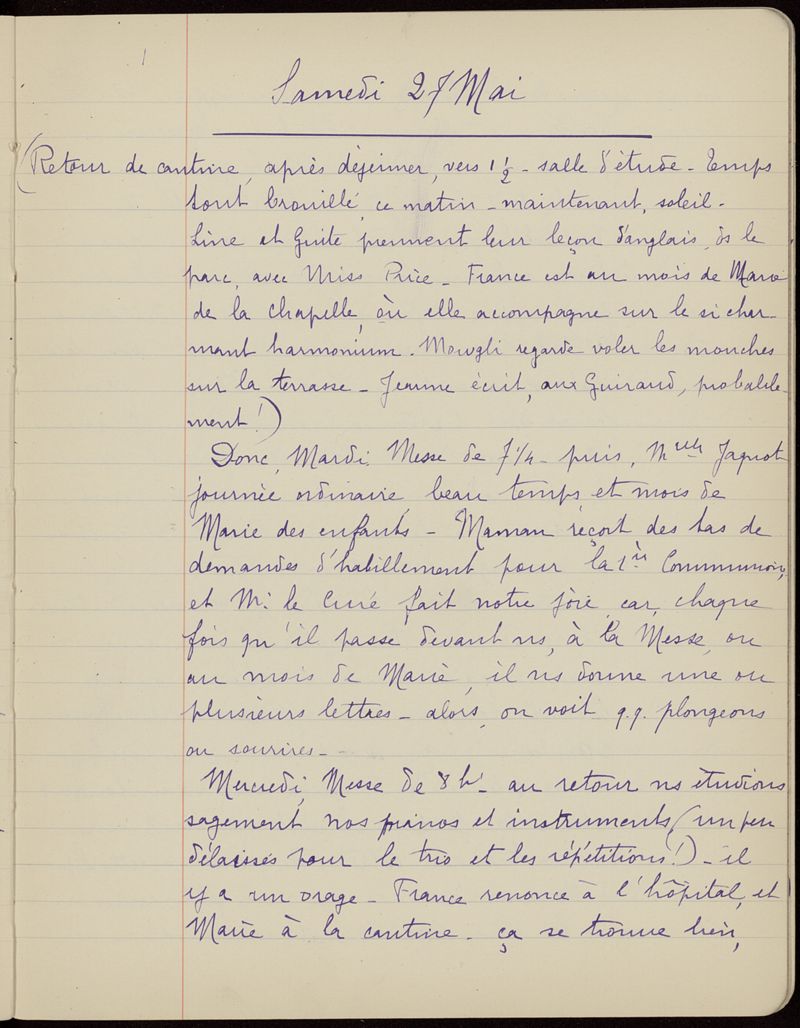 Samedi 27 Mai
(Retour de cantine, après déjeuner, vers 1 1/2 - salle d'étude - Temps
tout brouillé, ce matin - maintenant, soleil -
Line et Guite prennent leur leçon d'anglais, ds le
parc, avec Miss Price - France est au mois de Marie
de la chapelle, où elle accompagne sur le si char-
mant harmonium. Mowgli regarde voler les mouches
sur la terrasse - Jeanne écrit, aux Guiraud, probable-
ment!)
Donc, Mardi, Messe de 7 1/4 - puis, Melle Jaquot
journée ordinaire, beau temps, et mois de
Marie des enfants - Maman reçoit des tas de
demandes d'habillement pour la 1ère Communion,
et M. le Curé fait notre joie, car, chaque
fois qu'il passe devant ns, à la Messe, ou
au mois de Marie, il ns donne une ou
plusieurs lettres - alors, on voit q.q. plongeons
ou sourires - -
Mercredi, Messe de 8h - au retour ns étudions
sagement nos pianos et instruments (un peu
délaissés pour le trio et les répétitions!) - il
y a un orage - France renonce à l'hôpital, et
Marie à la cantine - ça se trouve bien,